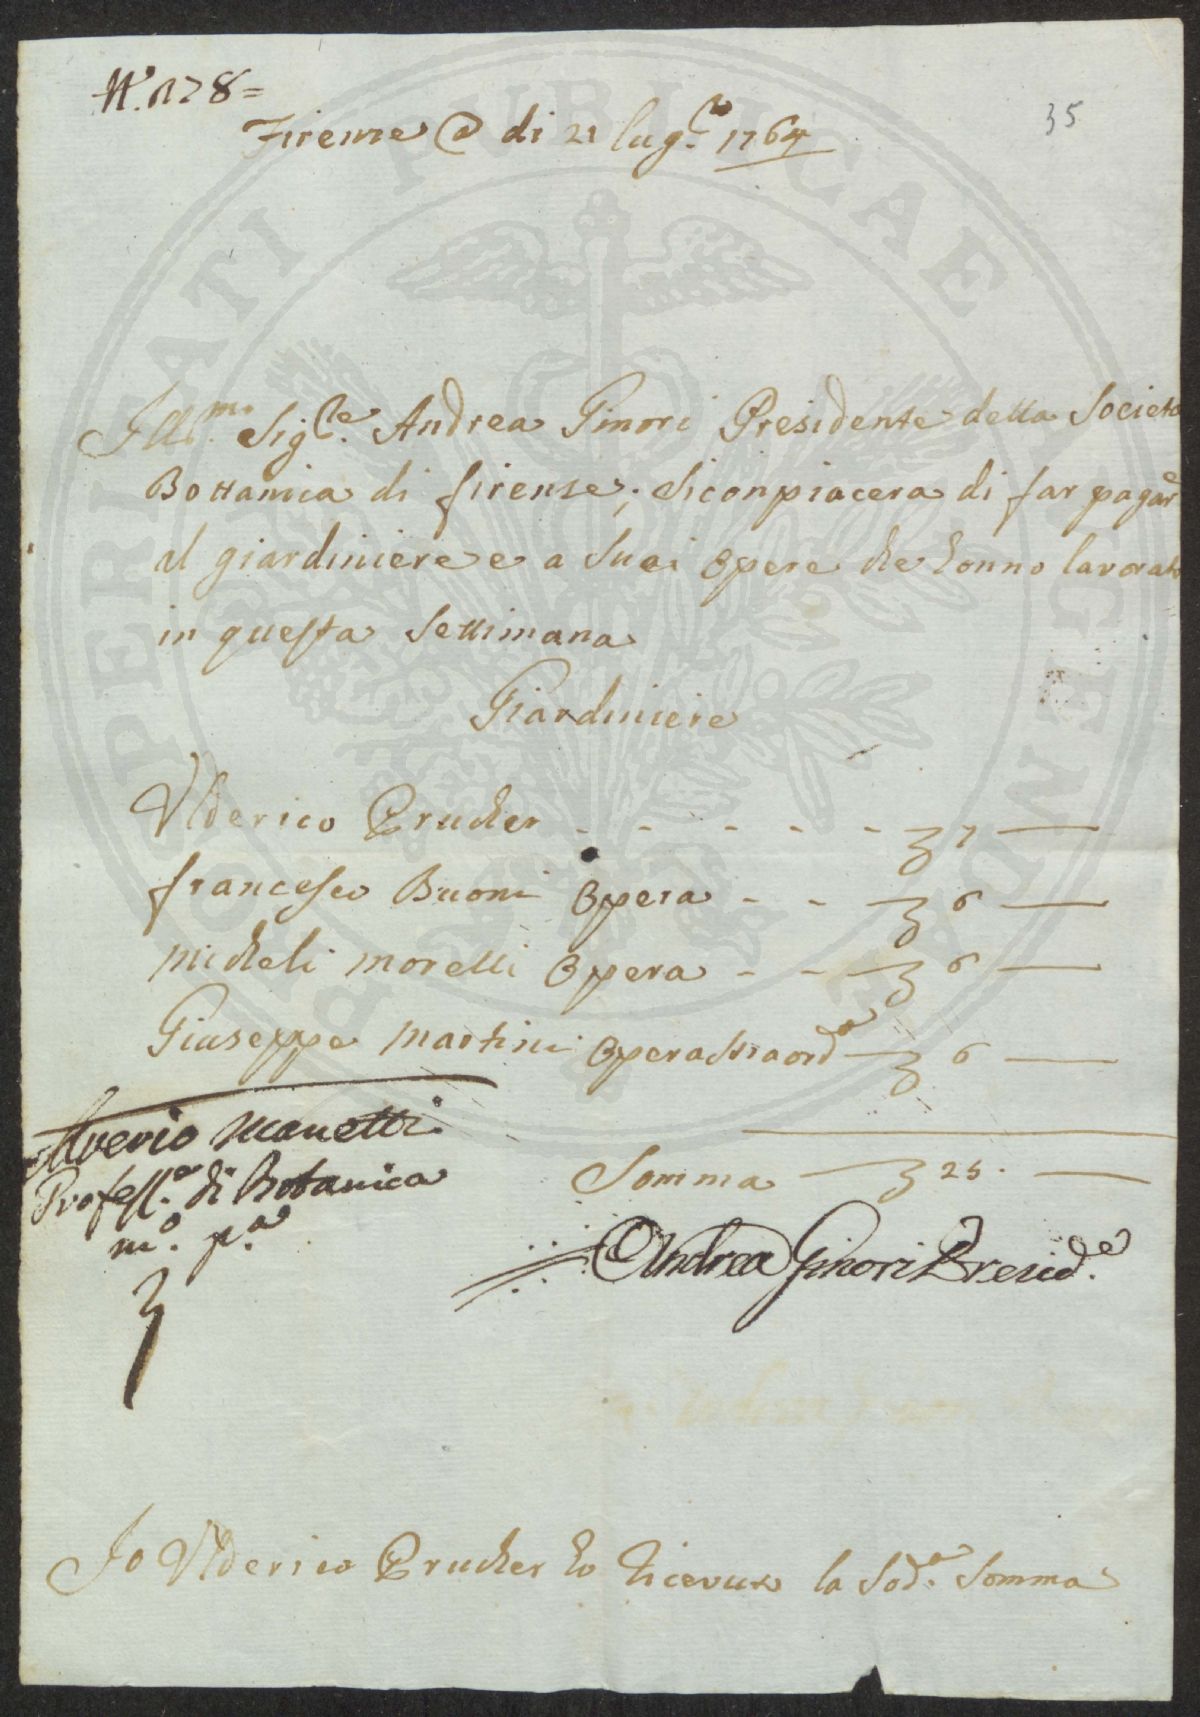 N.° 178=
35
Firenze @ di 21 lug.lo 1764
Ill.mo Sig.re Andrea Ginori Presidente della Societa
Bottanica di firense; Si conpiacera di far pagare
al giardiniere e a Suoi Opere che honno lavorato
in questa Settimana
Giardiniere
Vlderico Prucker - - - - - 7 —
francesco Buoni Opera - - 6 —
Micheli morelli Opera - - 6 —
Giuseppe Martini Opera straord.a 6 —
Somma — 25. —
Saverio Manetti
Profess.or di Botanica
m.o p.a
Andrea Ginori Presid.e
Io Vlderico Prucker ho Ricevuto la Sod.a Somma
PROSPERITATI PUBLICAE AUGENDAE